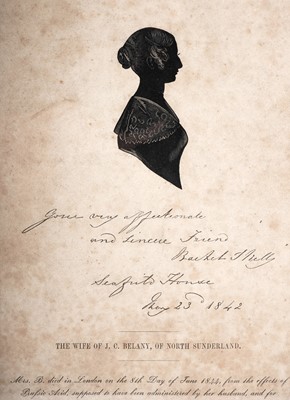 Your very affectionate
and sincere Friend
Rachel Skelly
Seafield House
May 23d 1842
THE WIFE OF J. C. BELANY, OF NORTH SUNDERLAND,
Mrs. B. died in London on the 8th Day of June 1844, from the effects of
Prussic Acid, supposed to have been administered by her husband, and for